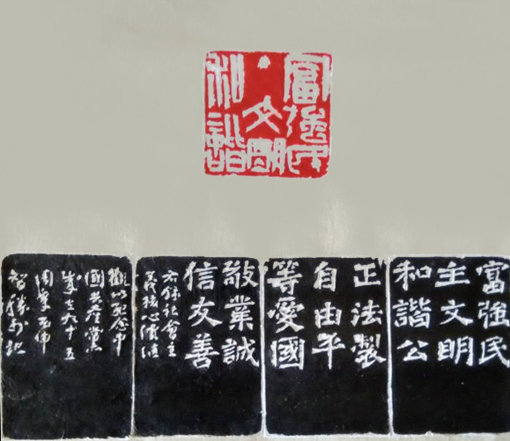 富強民
主文明
和諧
富強民
主文明
和諧公
正法製
自由平
等愛國
敬業誠
信友善
右錄社會主
義核心價值
觀以紀念中
國共產黨
成立九十五
周年丙申
智勝